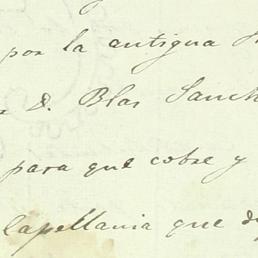 por la antigua
D. Blas Sanch
para que cobre y
Capellania que